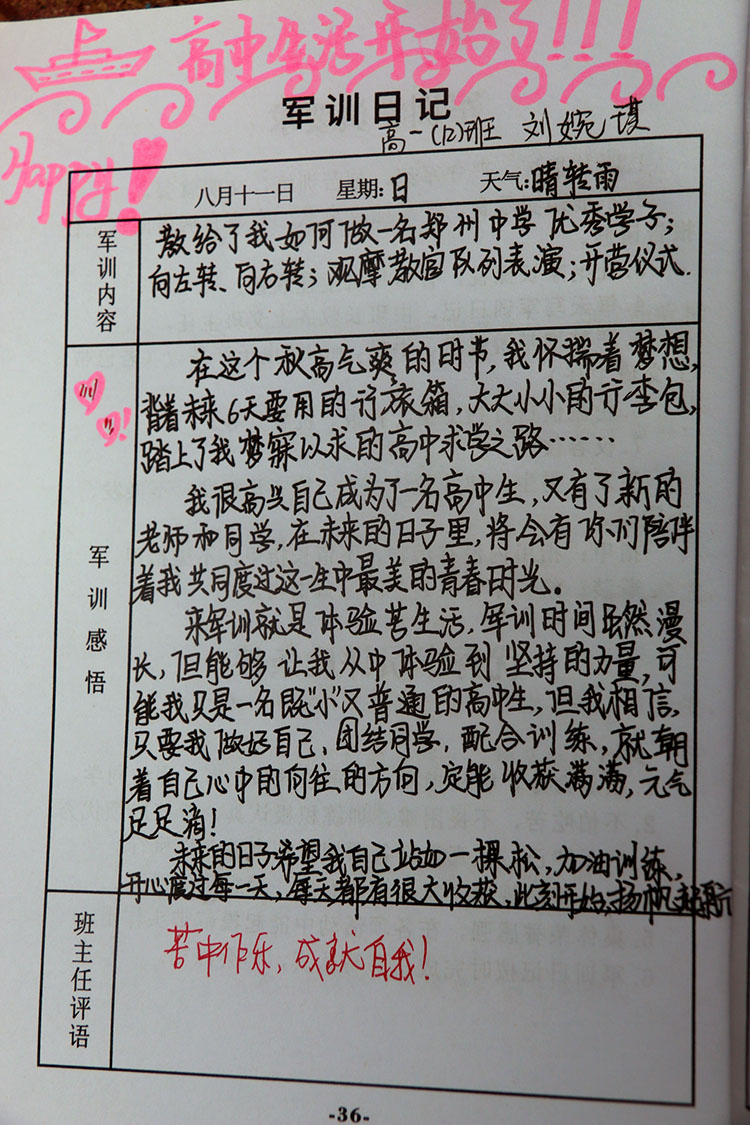 高中生活开始了!!!
军训日记
高一(12)班 刘婉琪
加油!
八月十一日 星期:日 天气:晴转雨
军训内容
教给了我如何做一名郑州中学优秀学子;
向左转、向右转;观摩教官队列表演;开营仪式.
军训感悟
在这个秋高气爽的时节,我怀揣着梦想,
背着未来6天要用的行旅箱,大大小小的行李包,
踏上了我梦寐以求的高中求学之路……
我很高兴自己成为了一名高中生,又有了新的
老师和同学,在未来的日子里,将会有你们陪伴
着我共同度过这一生中最美的青春时光。
来军训就是体验苦生活,军训时间虽然漫
长,但能够让我从中体验到坚持的力量,可
能我只是一名既"小"又普通的高中生,但我相信,
只要我做好自己、团结同学,配合训练,就朝
着自己心中的向往的方向,定能收获满满,元气
足足滴!
未来的日子希望我自己站如一棵松,加油训练,
开心度过每一天,每天都有很大收获,此刻开始,扬帆起航
班主任评语
苦中作乐,成就自我!
-36-